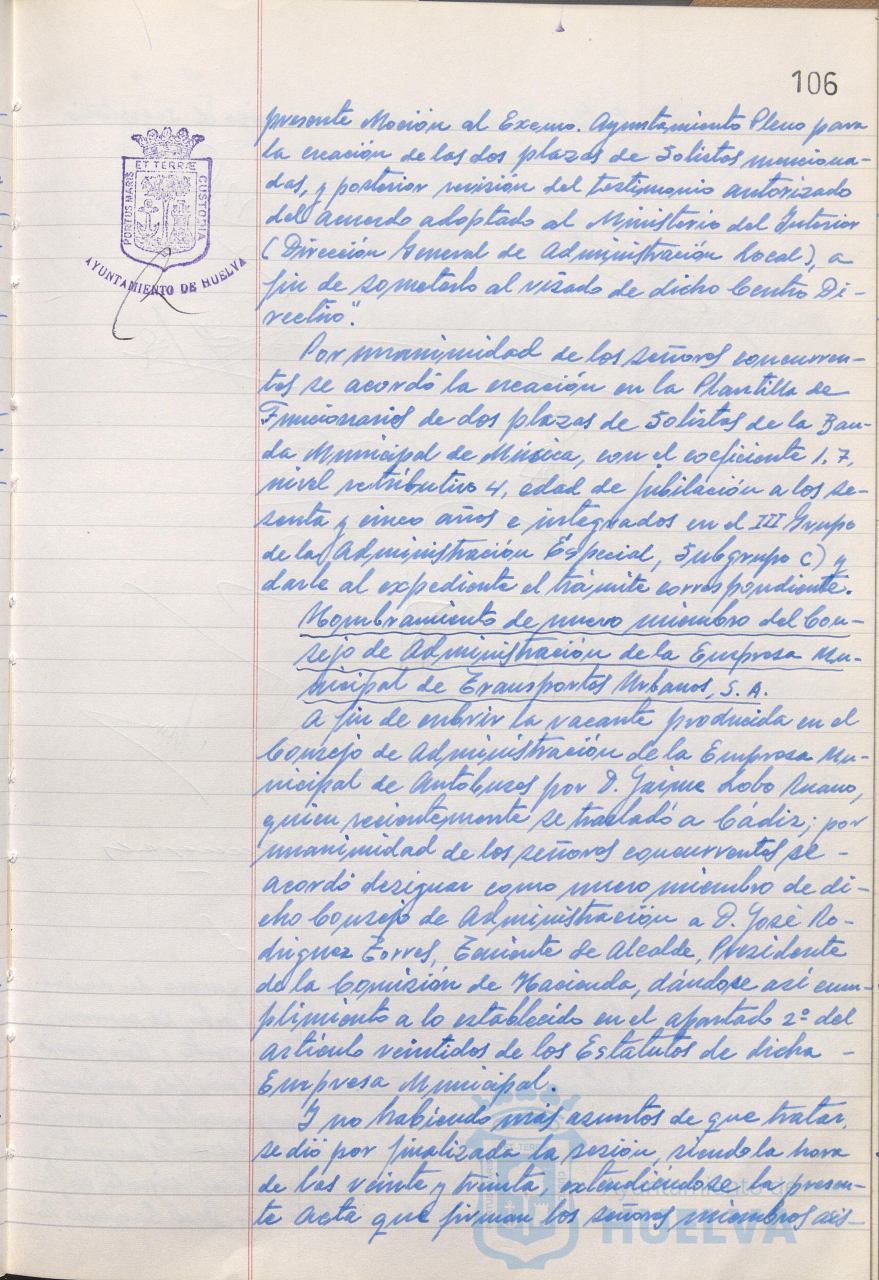 106
PORTUS MARIS
ET TERRÆ
CUSTODIA
AYUNTAMIENTO DE HUELVA
presente Moción al Excmo. Ayuntamiento Pleno para
la creación de las dos plazas de Solistas menciona-
das, y posterior revisión del testimonio autorizado
del acuerdo adoptado al Ministerio del Interior
(Dirección General de Administración Local), a
fin de someterlo al visado de dicho Centro Di-
rectivo".
Por unanimidad de los señores concurren-
tes se acordó la creación en la Plantilla de
Funcionarios de dos plazas de Solistas de la Ban-
da Municipal de Música, con el coeficiente 1.7,
nivel retributivo 4, edad de jubilación a los se-
senta y cinco años e integrados en el III Grupo
de la (Administración Especial, Subgrupo C) y
darle al expediente el trámite correspondiente.
Nombramiento de nuevo miembro del Con-
sejo de Administración de la Empresa Mu-
nicipal de Transportes Urbanos, S.A.
A fin de cubrir la vacante producida en el
Consejo de Administración de la Empresa Mu-
nicipal de Autobuses por D. Jaime Lobo Ruano,
quien recientemente se trasladó a Cádiz; por
unanimidad de los señores concurrentes se -
acordó designar como nuevo miembro de di-
cho Consejo de Administración a D. José Ro-
dríguez Torres, Teniente de Alcalde, Presidente
de la Comisión de Hacienda, dándose así cum-
plimiento a lo establecido en el apartado 2º del
artículo veintidos de los Estatutos de dicha -
Empresa Municipal.
Y no habiendo más asuntos de que tratar,
se dió por finalizada la sesión, siendo la hora
de las veinte y treinta, extendiéndose la presen-
te Acta que firman los señores miembros asis-
Ayuntamiento de
HUELVA